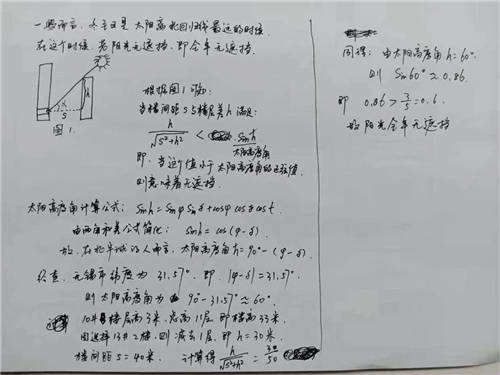 一般而言,冬至日是太阳离北回归线最远的时候.
在这个时候,若阳光无遮挡,即全年无遮挡.
h
S
图1.
根据图1可知:
当楼间距S与楼层差h满足:
h/√(S²+h²) < Sin h
太阳高度角
即,当这个值小于太阳高度角的正弦值,
则意味着无遮挡.
太阳高度角计算公式: Sin h = Sinφ Sinδ + cosφ cosδ cos t.
由两角和差公式简化: Sin h = cos(φ-δ)
故,在北半球的人而言,太阳高度角 h = 90° - (φ-δ)
经查,无锡市纬度为 31.57°. 即 |φ-δ| = 31.57°.
则太阳高度角为 90° - 31.57° ≈ 60°.
10#楼层高3米,总高11层,即楼高33米.
因选择13#2楼,则减去1层,即h=30米
楼间距 S = 40米. 计算得 h/√(S²+h²) = 30/50
同得: 由太阳高度角 h = 60°
则 Sin 60° ≈ 0.86
即 0.86 > 3/5 = 0.6.
故阳光全年无遮挡